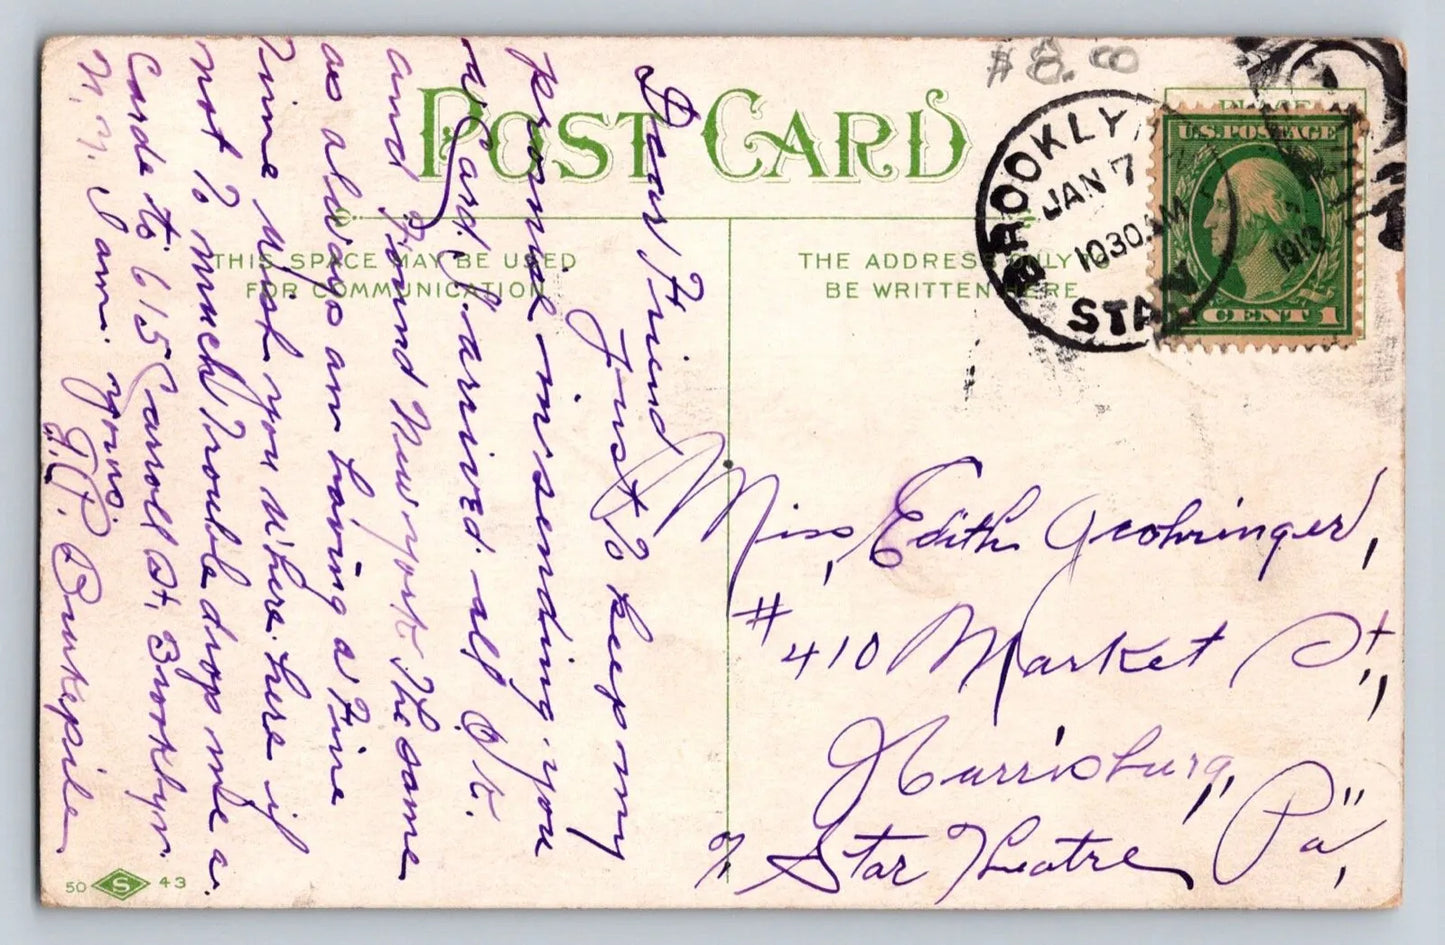 $8.00
POST CARD
THIS SPACE MAY BE USED
FOR COMMUNICATION
THE ADDRESS ONLY TO
BE WRITTEN HERE
PLACE
BROOKLYN
JAN 7
10 30 AM
1913
STA.
U.S. POSTAGE
1 CENT 1
Dear Friend
Just to keep my
promise in sending you
a Card. I arrived all O.K.
and Found New york the same
as always am having a Fine
Time wish you where here if
not to much Trouble drop me a
Carde to 615 Carroll St, Brooklyn.
N.Y. I am. yours.
Miss, Edith Geohringer,
#410 Market St,
Harrisburg,
Pa,
% Star Theatre
50 S 43